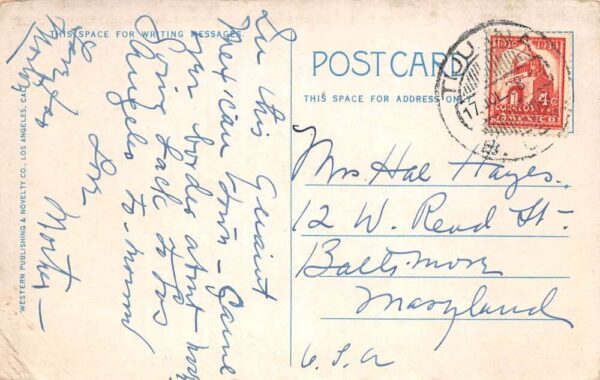 THIS SPACE FOR WRITING MESSAGES
POSTCARD
THIS SPACE FOR ADDRESS ONLY
WESTERN PUBLISHING & NOVELTY CO., LOS ANGELES, CAL.
In this quaint
Mexican town - Came
over border about noon
Going back to Los
Angeles to-morrow
Love
Mother -
Mrs Hal Hayes.
12 W. Read St.
Baltimore
Maryland
U.S.A
TIJUANA
17 JUL
B. C.
CORREOS
MEXICO
4 C